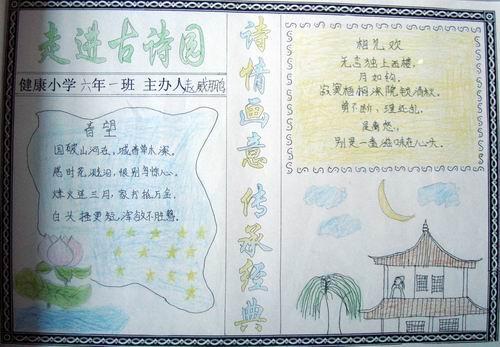 走进古诗园
健康小学 六年一班 主办人赵威鹏
春望
国破山河在，城春草木深。
感时花溅泪，恨别鸟惊心。
烽火连三月，家书抵万金。
白头搔更短，浑欲不胜簪。
诗情画意 传承经典
相见欢
无言独上西楼，
月如钩。
寂寞梧桐深院锁清秋。
剪不断，理还乱，
是离愁，
别是一番滋味在心头。